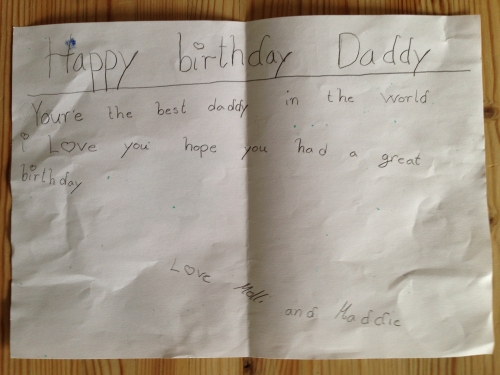 Happy birthday Daddy
Youre the best daddy in the world
i Love you hope you had a great
birthday
Love and Maddie